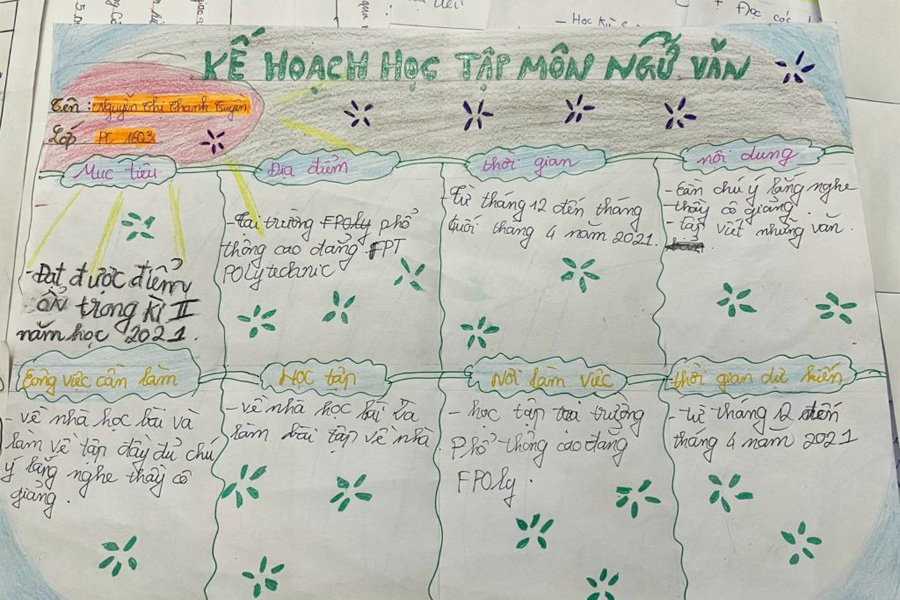 KẾ HOẠCH HỌC TẬP MÔN NGỮ VĂN
Tên : Nguyễn Thị Thanh Tuyền
Lớp PC 1603
Mục tiêu
- Đạt được điểm
ổn trong kì II
năm học 2021.
Địa điểm
- Tại trường FPOly phổ
thông cao đẳng FPT
POlytechnic
thời gian
- Từ tháng 12 đến tháng
cuối tháng 4 năm 2021.
nôi dung
- Cần chú ý lắng nghe
thầy cô giảng.
- tập viết những văn.
Công việc cần làm
- về nhà học bài và
làm vê tập đầy đủ chú
ý lắng nghe thầy cô
giảng.
Học tập
- về nhà học bài và
làm bài tập về nhà
Nơi làm việc
- học tập tại trường
Phổ thông cao đẳng
FPOly.
thời gian dự kiến
- từ tháng 12 đến
tháng 4 năm 2021
- Học Kì
+ Đọc các